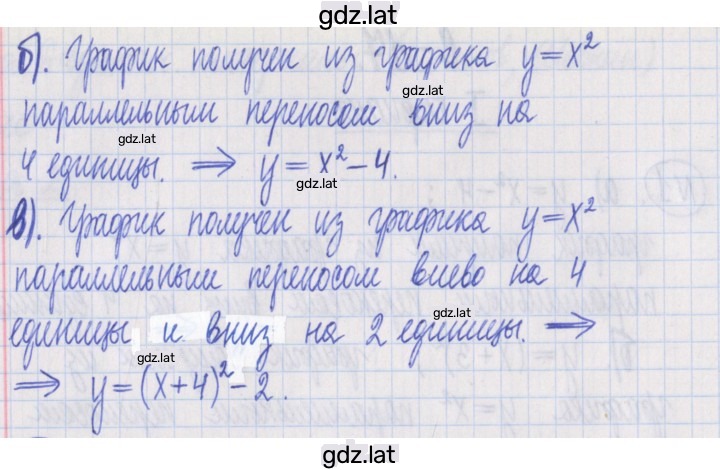 gdz.lat
б). График получен из графика y = x²
параллельным переносом вниз на
gdz.lat
4 единицы. ⟹ y = x² – 4.
gdz.lat
в). График получен из графика y = x²
gdz.lat
параллельным переносом влево на 4
единицы и вниз на 2 единицы. ⟹
gdz.lat
⟹ y = (x + 4)² – 2.
gdz.lat